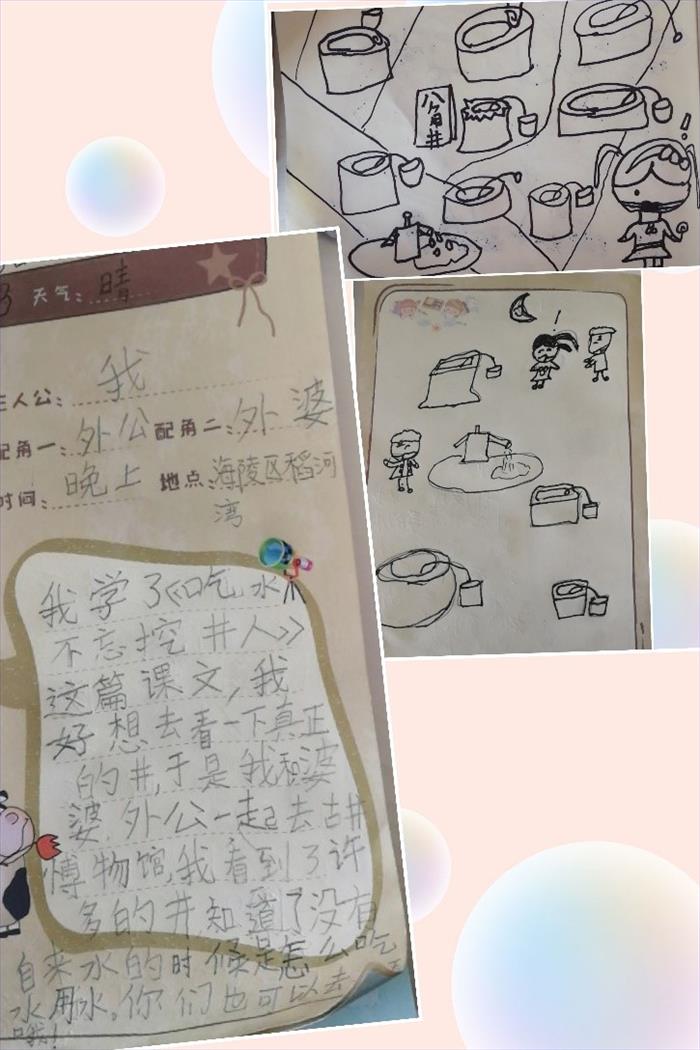 八角井
天气: 晴
主人公: 我
配角一: 外公 配角二: 外婆
时间: 晚上 地点: 海陵区稻河
湾
我学了《吃水
不忘挖井人》
这篇课文,我
好想去看一下真正
的井,于是我和婆
婆、外公一起去古井
博物馆,我看到了许
多的井知道了没有
自来水的时候是怎么吃
水用水。你们也可以去
哦!